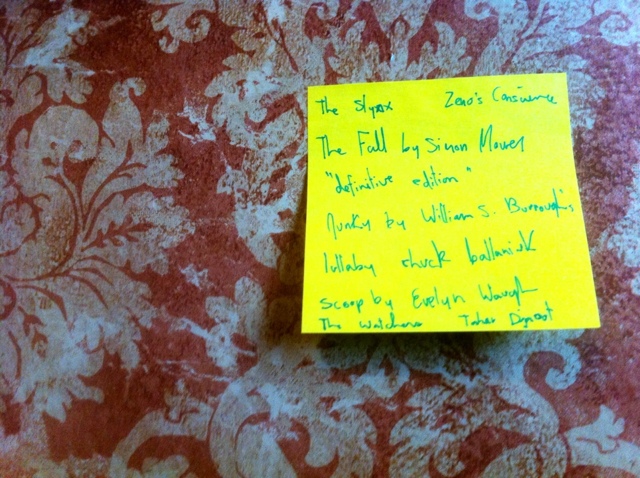 The Zeno's Conscience
The Fall by Simon Mawer
"definitive edition"
Junky by William S. Burroughs
lullaby chuck
scoop by Evelyn Waugh
The Watchers Taher